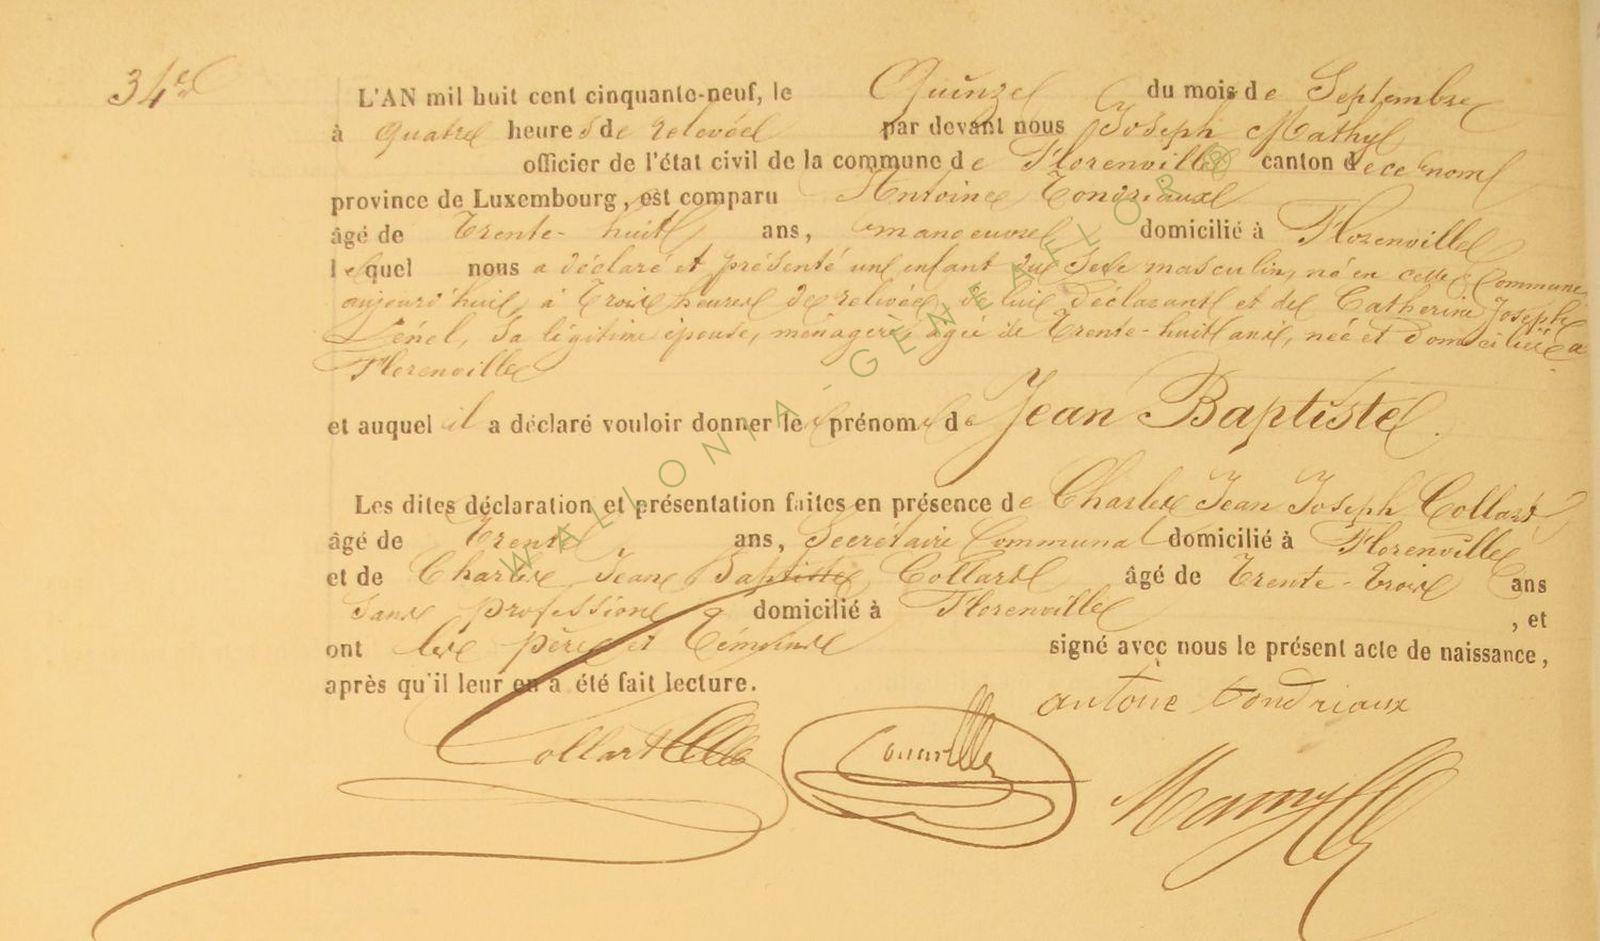 34e
L'AN mil huit cent cinquante-neuf, le Quinze du mois de Septembre
à quatre heures de relevée par devant nous Joseph Mathy
officier de l'état civil de la commune de Florenville canton de ce nom
province de Luxembourg, est comparu Antoine Tondriaux
âgé de Trente-huit ans, manoeuvre domicilié à Florenville
lequel nous a déclaré et présenté un enfant du sexe masculin, né en cette Commune
aujourd'hui, à Trois heures de relevée, de lui déclarant et de Catherine Joseph
sa légitime épouse, ménagère, agée de Trente-huit ans, née et domiciliée à
Florenville
et auquel il a déclaré vouloir donner le prénom de Jean Baptiste.
Les dites déclaration et présentation faites en présence de Charles Jean Joseph Collart
âgé de Trente ans, Secrétaire Communal domicilié à Florenville
et de Charles Jean Baptiste Collart âgé de Trente-trois ans
sans profession domicilié à Florenville , et
ont les père et témoins signé avec nous le présent acte de naissance,
après qu'il leur en a été fait lecture.
antoine tondriaux
Collart
WALLONIA-GENEALOR®